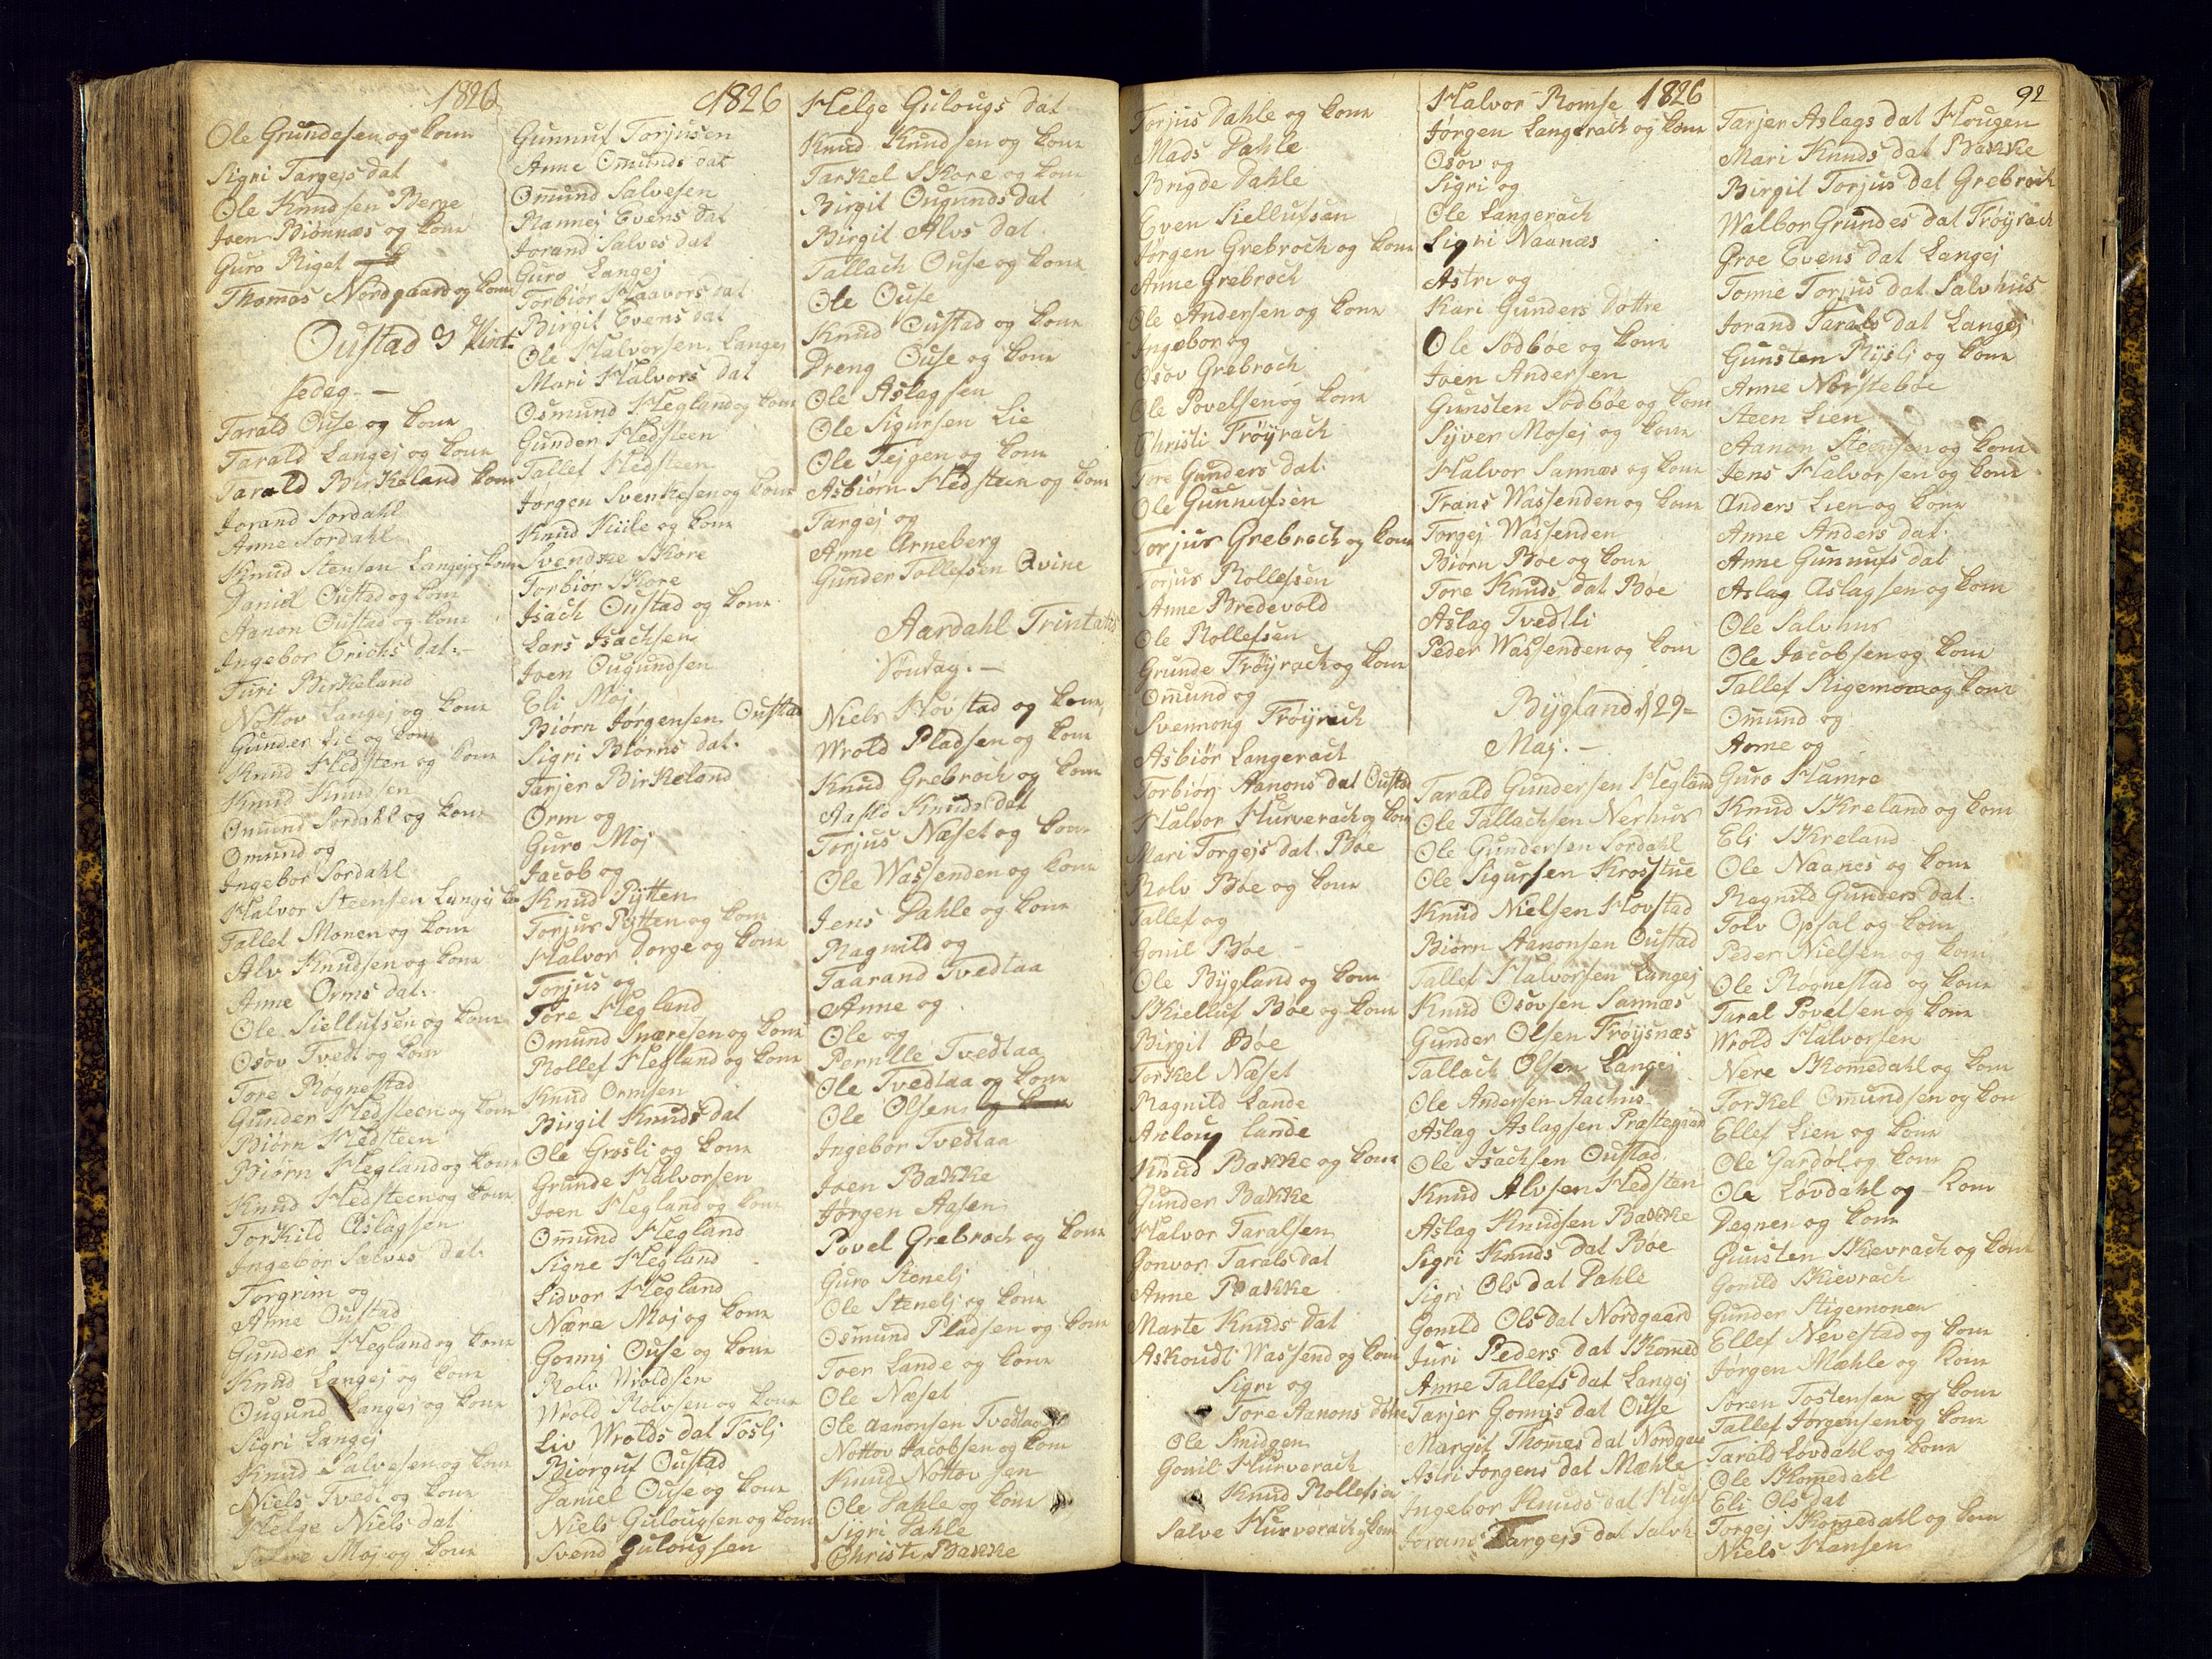 1826
Ole Grundesen og kone
Sigri Targejs dat
Ole Knudsen Berge
Joen Biønnæs og kone
Guro Riget
Thomas Nordgaard og kone
Oustad 3 Pint:
sedag. -
Tarald Ouse og kone
Tarald Langej og kone
Tarald Birkeland kone
Jorand Sordahl
Anne Sordahl
Knud Stensen Langej og kone
Daniel Oustad og kone
Aanon Oustad og kone
Ingebor Erichs dat. -
Turi Birkeland
Nottov Langej og kone
Gunder Lie og kone
Knud Hedsten og kone
Knud Knudsen
Omund Sordahl og kone
Omund og
Ingebor Sordahl
Halvor Steensen Langej
Tallef Monen og kone
Alv Knudsen og kone
Anne Orms dat.
Ole Siellufsen og kone
Osov Tvedt og kone
Tore Rognestad
Gunder Hedsteen og kone
Biørn Hedsteen
Biørn Hegland og kone
Knud Hedsteen og kone
Torkild Aslagsen
Ingebor Salves dat.
Torgrim og
Anne Oustad
Gunder Hegland og kone
Knud Langej og kone
Ougund Langej og kone
Sigri Langej
Knud Salvesen og kone
Niels Tvedt og kone
Helge Niels dat
Moj og kone
1826
Gunnuf Torjusen
Anne Omunds dat
Omund Salvesen
Rannej Evens dat
Jorand Salves dat
Guro Langej
Torbiør Haavors dat
Birgit Evens dat
Ole Halvorsen Langej
Mari Halvors dat
Osmund Hegland og kone
Gunder Hedsteen
Tallef Hedsteen
Jørgen Svenkesen og kone
Knud Kiile og kone
Svendke Skore
Torbiør Skore
Isach Oustad og kone
Lars Isachsen
Joen Ougundsen
Eli Moj
Biørn Jørgensen Oustad
Sigri Biørns dat.
Tarjer Birkeland
Orm og
Guro Moj
Jacob og
Knud Pytten
Torjus Pytten og kone
Halvor Dorge og kone
Torjus og
Tore Hegland
Omund Snæresen og kone
Rollef Hegland og kone
Knud Ormsen
Birgit Knuds dat
Ole Grosli og kone
Grunde Halvorsen
Joen Hegland og kone
Omund Hegland
Signe Hegland
Lidvor Hegland
Nære Moj og kone
Gonnij Ouse og kone
Rolv Wroldsen
Wrold Rolvsen og kone
Liv Wrolds dat Foslj
Biorguf Oustad
Daniel Ouse og kone
Niels Gulougsen og kone
Svend Gulougsen
Helge Gulougs dat
Knud Knudsen og kone
Tarkel Skore og kone
Birgit Ougunds dat
Birgit Alvs dat.
Tallach Ouse og kone
Ole Ouse
Knud Oustad og kone
Dreng Ouse og kone
Ole Aslagsen
Ole Sigursen Lie
Ole Tejgen og kone
Asbiørn Hedsteen og kone
Targej og
Anne Arneberg
Gunder Tollefsen Qvine
Aardahl Trintatis
Søndag. -
Niels Hovstad og kone
Wrold Pladsen og kone
Knud Grebroch og kone
Aaslo Knuds dat
Torjus Næset og kone
Ole Wassenden og kone
Jens Dahle og kone
Ragnild og
Taarand Tvedtaa
Anne og
Ole og
Pernille Tvedtaa
Ole Tvedtaa og kone
Ole Olsen og kone
Ingebor Tvedtaa
Joen Bakke
Jørgen Aasen
Povel Grebroch og kone
Guro Stenelj
Ole Stenelj og kone
Osmund Pladsen og kone
Toer Lande og kone
Ole Næset
Ole Aanonsen Tvedtaa
Nottov Jacobsen og kone
Knud Nottovsen
Ole Dahle og kone
Sigri Dahle
Christi Bakke
Torjus Dahle og kone
Mads Dahle
Brigde Dahle
Even Siellufsen
Jørgen Grebroch og kone
Anne Grebroch
Ole Andersen og kone
Ingebor og
Osov Grebroch
Ole Povelsen og kone
Christi Frøÿrach
Tore Gunders dat.
Ole Gunnufsen
Torjus Grebroch og kone
Torjus Rollefsen
Anne Bredevold
Ole Rollefsen
Grunde Frøÿrach og kone
Omund og
Svennong Frøÿrach
Asbiør Langerach
Torbiørj Aanons dat Oustad
Halvor Hurverach og kone
Mari Torgejs dat. Bøe
Rolv Bøe og kone
Tallef og
Gonil Bøe
Ole Bÿgland og kone
Skielluf Bøe og kone
Birgit Bøe
Torkel Næset
Ragnild Lande
Asloug Lande
Knud Bakke og kone
Gunder Bakke
Halvor Taralsen
Gonvor Tarals dat
Anne Bakke
Marte Knuds dat
Askoudt Wassend og kone
Sigri og
Tore Aanons døtre
Ole Smidgen
Gonil Hurverach
Knud Rollefsen
Salve Hurverach og kone
Halvor Romse 1826
Jørgen Langerach og kone
Osov og
Sigri og
Ole Langerach
Sigri Naanæs
Astri og
Kari Gunders Døttre
Ole Sodbøe og kone
Joen Andersen
Gunsten Sodbøe og kone
Syver Mosej og kone
Halvor Sannæs og kone
Frans Wassenden og kone
Torgej Wassenden
Biørn Bøe og kone
Tore Knuds dat Bøe
Aslag Tvedtli
Peder Wassenden og kone
Bÿgland d 29 -
Maj. -
Tarald Gundersen Hegland
Ole Tallachsen Nerhus
Ole Gundersen Sordahl
Ole Sigursen Krosstue
Knud Nielsen Hovstad
Biørn Aanonsen Oustad
Tallef Halvorsen Langej
Knud Osovsen Sannæs
Gunder Olsen Frøÿsnæs
Tallach Olsen Langej
Ole Andersen Aachus
Aslag Aslagsen Præstegaar
Ole Isachsen Oustad
Knud Alvsen Hedsten
Aslag Knudsen Bakke
Sigri Knuds dat Bøe
Sigri Ols dat Dahle
Gonild Ols dat Nordgaard
Juri Peders dat Skomed
Anne Tallefs dat Langej
Tarjer Gonnijs dat Ouse
Margit Thomes dat Nordgaa
Astri Jørgens dat Mæhle
Ingebor Knuds dat
Jorand Targejs dat Salvh
92
Tarjer Aslags dat Hougen
Mari Knuds dat Bakke
Birgit Torjus dat Grebroch
Walbor Grundes dat Frøÿrach
Groe Evens dat Langej
Tonne Torjus dat Salvhus
Jorand Tarals dat Langej
Gunsten Rÿslj og kone
Anne Norstebøe
Steen Lien
Aanon Steensen og kone
Jens Halvorsen og kone
Anders Lien og kone
Anne Anders dat.
Anne Gunnufs dat
Aslag Aslagsen og kone
Ole Salvhus
Ole Jacobsen og kone
Tallef Stigemoen og kone
Omund og
Anne og
Guro Hamre
Knud Skreland og kone
Eli Skreland
Ole Naanes og kone
Ragnild Gunders dat.
Tolv Opsal og kone
Peder Nielsen og kone
Ole Rognestad og kone
Taral Povelsen og kone
Wrold Halvorsen
Nere Skomedahl og kone
Torkel Omundsen og kon
Ellef Lien og kone
Ole Gardøl og kone
Ole Lovdahl og kone
Degnen og kone
Gunsten Skievrach og kone
Gonild Skievrach
Gunder Stigemonen
Ellef Nevestad og kone
Jørgen Mæhle og kone
Søren Tostensen og kone
Tallef Jørgensen og kone
Tarald Lovdahl og kone
Ole Skomedahl
Eli Ols dat
Torgej Skomedahl og kone
Niels Hansen